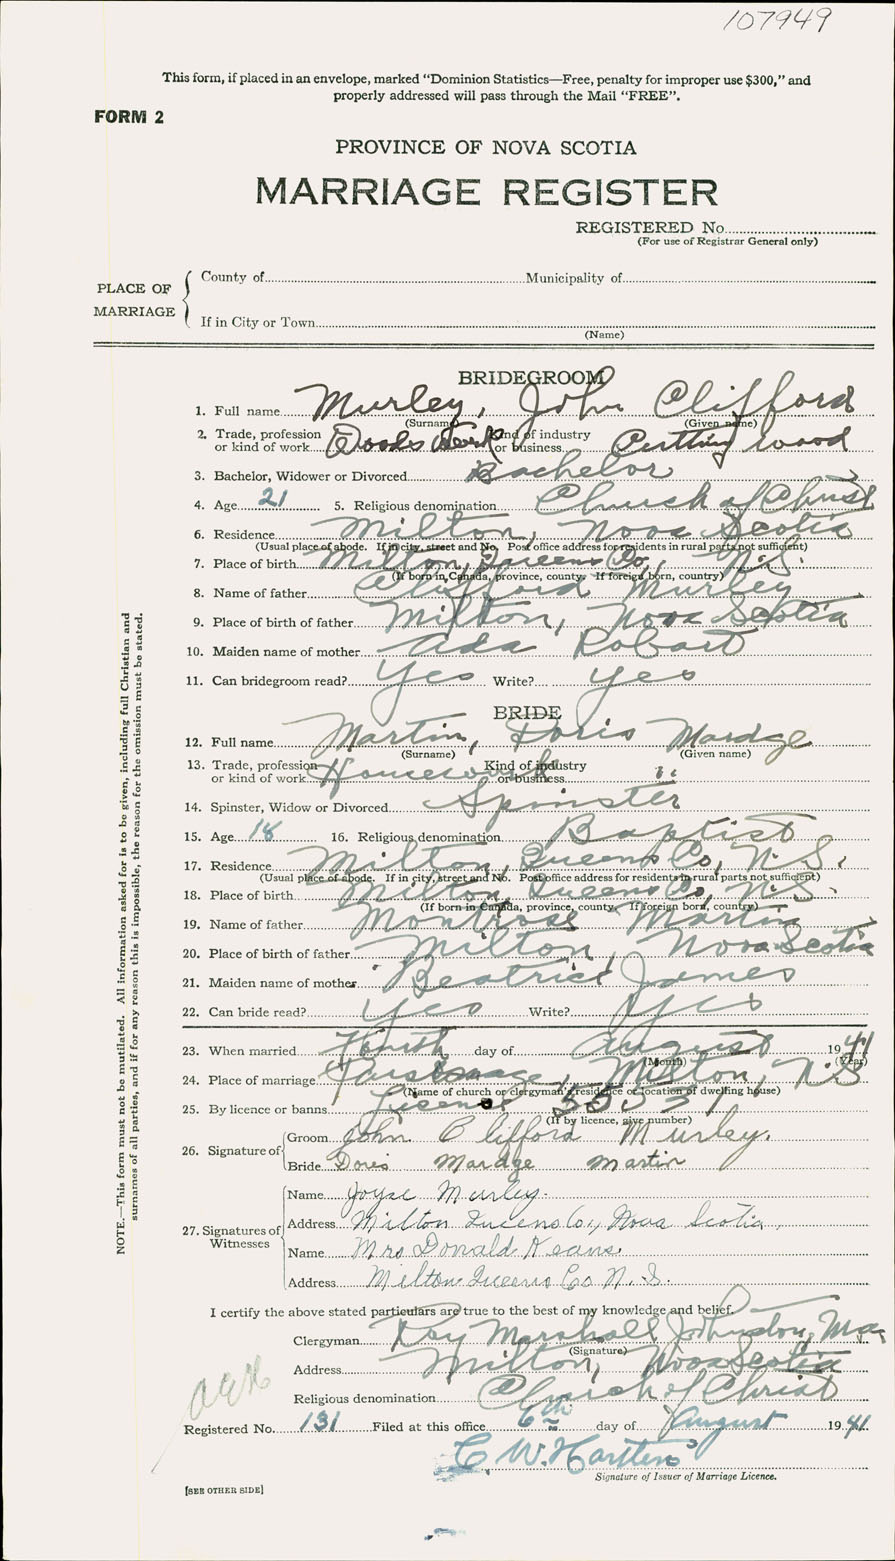 107949
This form, if placed in an envelope, marked "Dominion Statistics—Free, penalty for improper use $300," and
properly addressed will pass through the Mail "FREE".
FORM 2
PROVINCE OF NOVA SCOTIA
MARRIAGE REGISTER
REGISTERED No.
(For use of Registrar General only)
PLACE OF MARRIAGE
County of Municipality of
If in City or Town
(Name)
BRIDEGROOM
1. Full name Murley, John Clifford
(Surname) (Given name)
2. Trade, profession or kind of work Woods Work Kind of industry or business Cutting wood
3. Bachelor, Widower or Divorced Bachelor
4. Age 21 5. Religious denomination Church of Christ
6. Residence Milton, Nova Scotia
(Usual place of abode. If in city, street and No. Post office address for residents in rural parts not sufficient)
7. Place of birth Milton, Queens Co., N.S.
(If born in Canada, province, county. If foreign born, country)
8. Name of father Clifford Murley
9. Place of birth of father Milton, Nova Scotia
10. Maiden name of mother Ada Robart
11. Can bridegroom read? Yes Write? Yes
BRIDE
12. Full name Martin, Doris Mardge
(Surname) (Given name)
13. Trade, profession or kind of work Housework Kind of industry or business "
14. Spinster, Widow or Divorced Spinster
15. Age 18 16. Religious denomination Baptist
17. Residence Milton, Queens Co, N.S.
(Usual place of abode. If in city, street and No. Post office address for residents in rural parts not sufficient)
18. Place of birth Milton, Queens Co, N.S.
(If born in Canada, province, county. If foreign born, country)
19. Name of father Montrose Martin
20. Place of birth of father Milton, Nova Scotia
21. Maiden name of mother Beatrice James
22. Can bride read? Yes Write? Yes
23. When married day of August 1941
(Month) (Year)
24. Place of marriage Parsonage, Milton, N.S
(Name of church or clergyman's residence or location of dwelling house)
25. By licence or banns License
(If by licence, give number)
26. Signature of Groom John Clifford Murley.
Bride Doris Mardge Martin
27. Signatures of Witnesses
Name Joyse Murley.
Address Milton Queens Co., Nova Scotia.
Name Mrs Donald Keans
Address Milton Queens Co N. S.
I certify the above stated particulars are true to the best of my knowledge and belief.
Clergyman Roy Marshall Johnston,
(Signature)
Address Milton, Nova Scotia
Religious denomination Church of Christ
Registered No. 131 Filed at this office 6th day of August 1941
C. W. Harttens
Signature of Issuer of Marriage Licence.
[SEE OTHER SIDE]
NOTE.—This form must not be mutilated. All information asked for is to be given, including full Christian and
surnames of all parties, and if for any reason this is impossible, the reason for the omission must be stated.